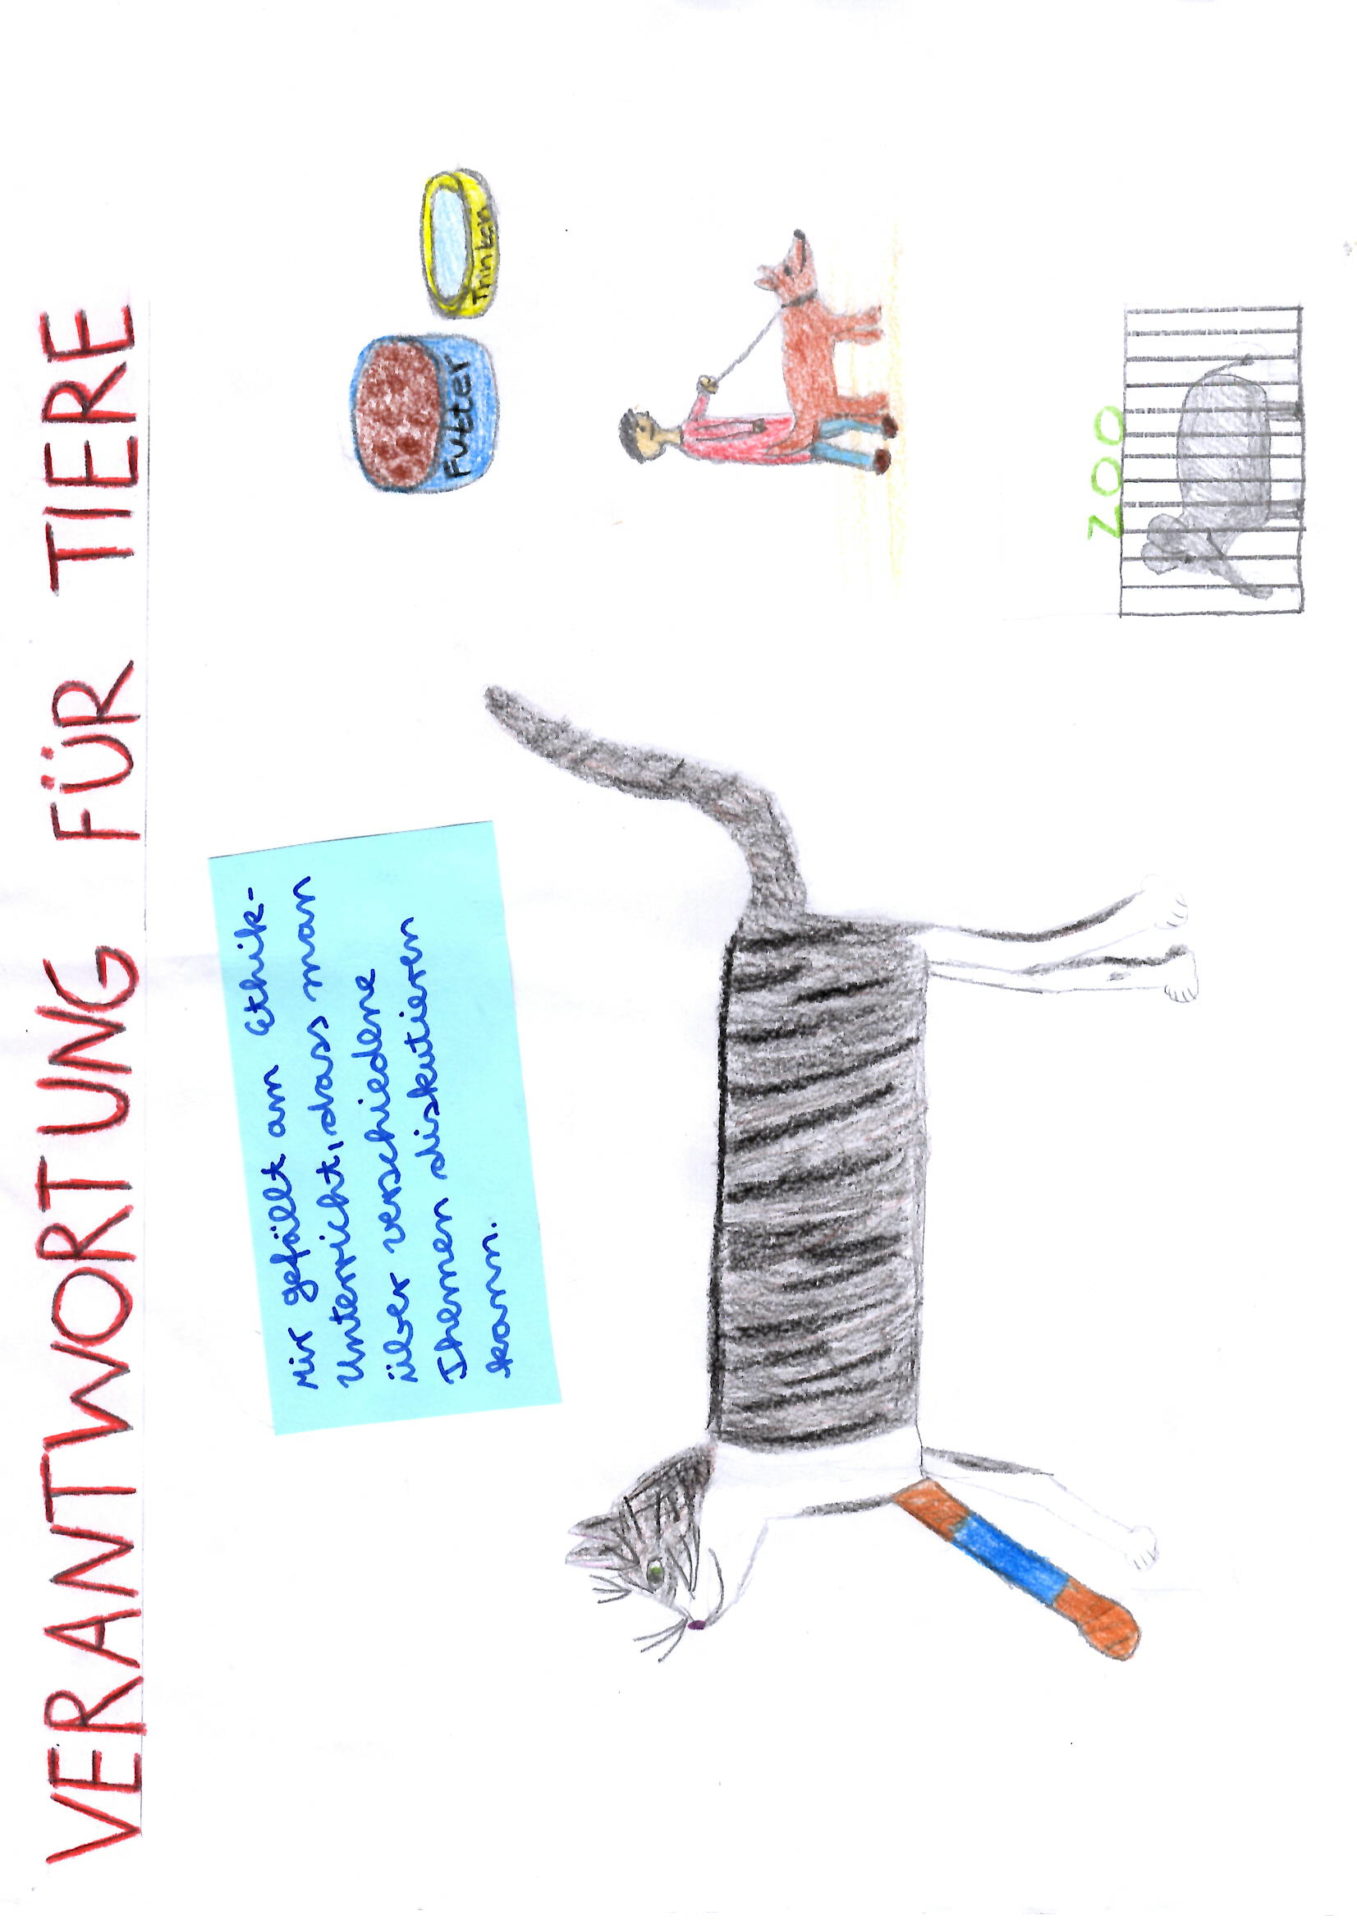 VERANTWORTUNG FÜR TIERE
Mir gefällt am Ethik-
Unterricht, dass man
über verschiedene
Themen diskutieren
kann.
Futter
Trinken
ZOO